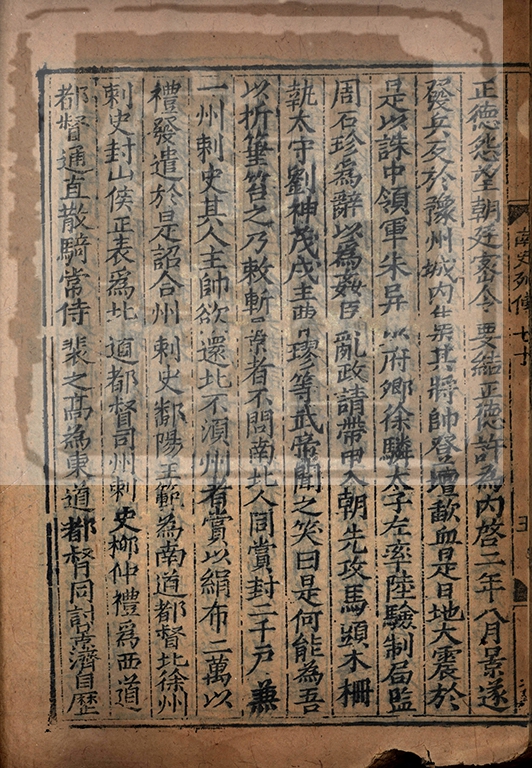 南史列傳七十
五
正德怨望朝廷密令要結正德許為內啓二年八月景遂
發兵反於豫州城內集其將帥登壇歃血是日地大震於
是以誅中領軍朱异少府卿徐驎太子左率陸驗制局監
周石珍為辭以為姦臣亂政請帶甲入朝先攻馬頭木柵
執太守劉神茂戍主曹璆等武帝聞之笑曰是何能為吾
以折箠笞之乃敕斬景者不問南北人同賞封二千戶兼
一州刺史其人主帥欲還北不須州者賞以絹布二萬以
禮發遣於是詔合州刺史鄱陽王範為南道都督北徐州
刺史封山侯正表爲北道都督司州刺史柳仲禮爲西道
都督通直散騎常侍裴之高為東道都督同討景濟自歷